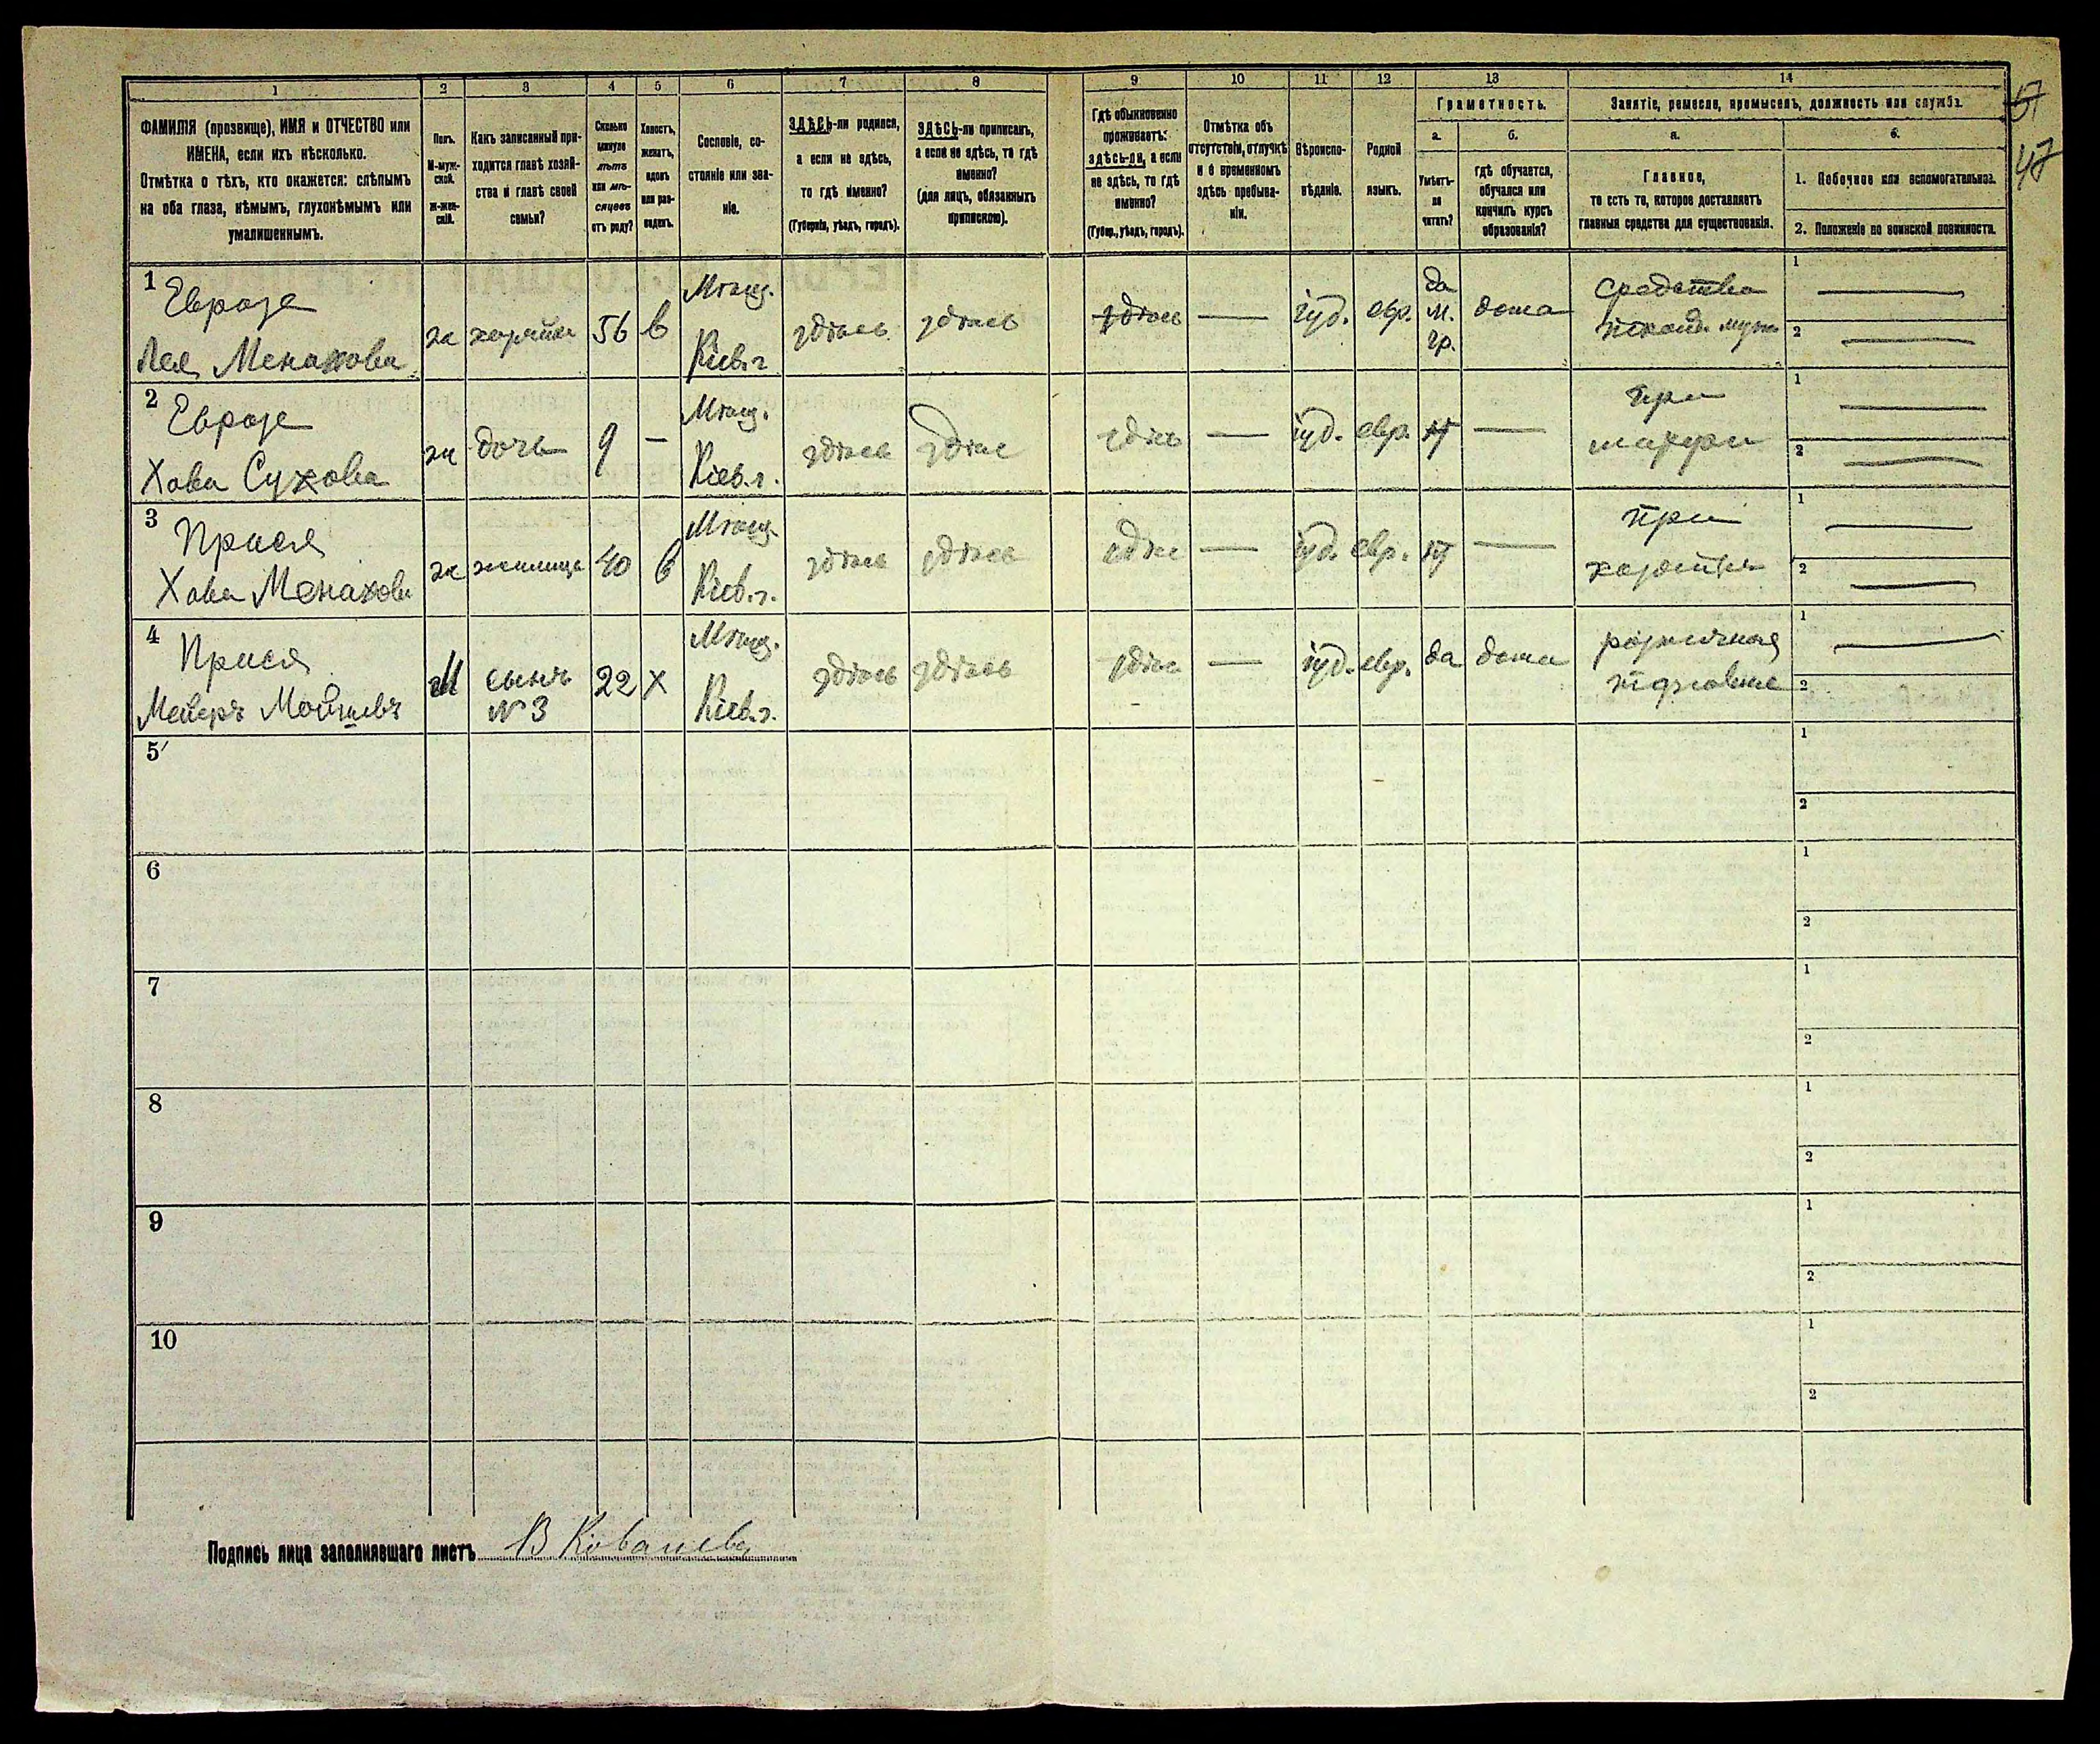 1 2 3 4 5 6 7 8 9 10 11 12 13 14
ФАМИЛІЯ (прозвище), ИМЯ и ОТЧЕСТВО или
ИМЕНА, если ихъ нѣсколько.
Отмѣтка о тѣхъ, кто окажется: слѣпымъ
на оба глаза, нѣмымъ, глухонѣмымъ или
умалишеннымъ.
Полъ.
М-муж-
ской.
ж-жен-
скій.
Какъ записанный при-
ходится главѣ хозяй-
ства и главѣ своей
семьи?
Сколько
минуло
лѣтъ
или мѣ-
сяцевъ
отъ роду?
Холостъ,
женатъ,
вдовъ
или раз-
веденъ.
Сословіе, со-
стояніе или зва-
ніе.
ЗДѢСЬ-ли родился,
а если не здѣсь,
то гдѣ именно?
(Губернія, уѣздъ, городъ).
ЗДѢСЬ-ли приписанъ,
а если не здѣсь, то гдѣ
именно?
(для лицъ, обязанныхъ
припискою).
Гдѣ обыкновенно
проживаетъ:
здѣсь-ли, а если
не здѣсь, то гдѣ
именно?
(Губер., уѣздъ, городъ).
Отмѣтка объ
отсутствіи, отлучкѣ
и о временномъ
здѣсь пребыва-
ніи.
Вѣроиспо-
вѣданіе.
Родной
языкъ.
Грамотность.
а.
Умѣетъ-
ли
читать?
б.
гдѣ обучается,
обучался или
кончилъ курсъ
образованія?
Занятіе, ремесло, промыселъ, должность или служба.
а.
Главное,
то есть то, которое доставляетъ
главныя средства для существованія.
б.
1. Побочное или вспомогательное.
2. Положеніе по воинской повинности.
47
1 Евразе
Лея Менахова
ж
хозяйка
56
в
Мѣщ.
Кіев. г.
здѣсь
здѣсь
здѣсь
—
іуд.
евр.
да
м.
гр.
дома
средства
1 —
2 —
2 Евразе
Хава Сухова
ж
дочь
9
—
Мѣщ.
Кіев. г.
здѣсь
здѣсь
здѣсь
—
іуд.
евр.
н
—
при
матери
1 —
2 —
3 Прися
Хава Менахова
ж
жилица
40
в
Мѣщ.
Кіев. г.
здѣсь
здѣсь
здѣсь
—
іуд.
евр.
н
—
при
1 —
2 —
4 Прися
Мейеръ Мойшевъ
М
сынъ
№ 3
22
х
Мѣщ.
Кіев. г.
здѣсь
здѣсь
здѣсь
—
іуд.
евр.
да
дома
розничная
торговля
1 —
2 —
5
1
2
6
1
2
7
1
2
8
1
2
9
1
2
10
1
2
Подпись лица заполнявшаго листъ